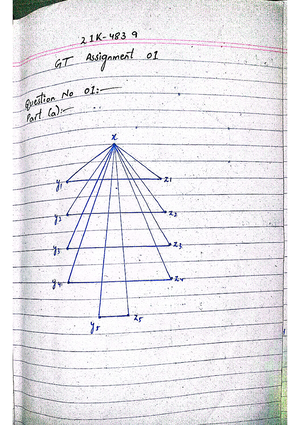 21K-4839
GT Assignment 01
Question No 01:-
Part (a):-
x
y1 z1
y2 z2
y3 z3
y4 z4
y5 z5